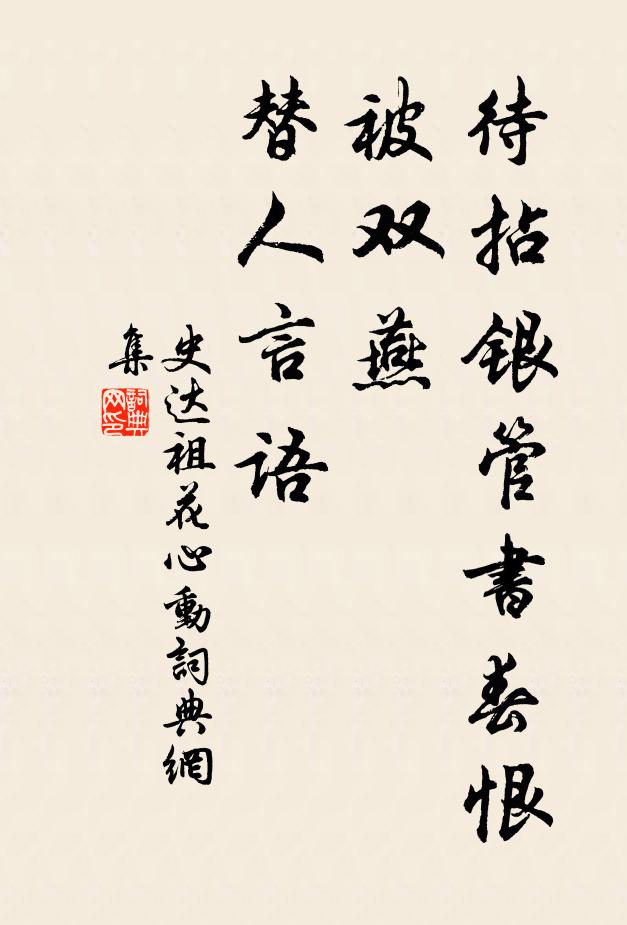 待拈银管書春恨
被双燕
替人言语
史达祖花心動詞典網
集
詞典
网印